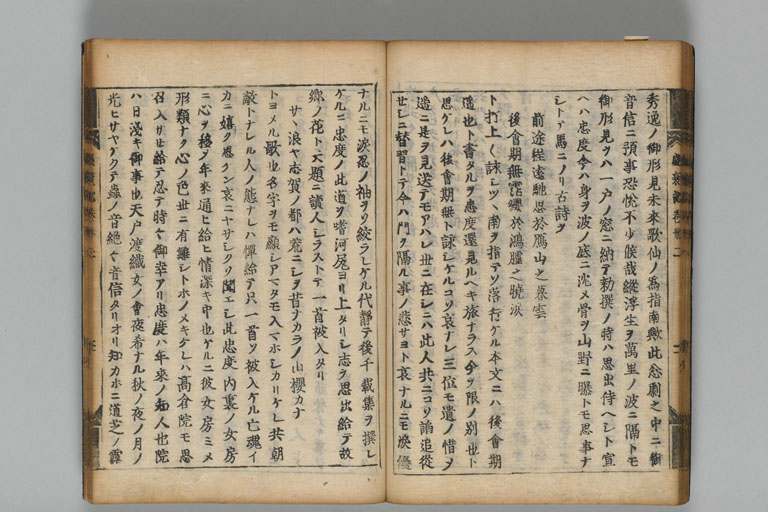 秀逸ノ御形見未来歌仙ノ為指南歟此怱劇之中ニ御
音信ニ預事恐悦不少候哉縦浮生ヲ萬里ノ波ニ隔トモ
御形見ヲハ一戸ノ窓ニ納テ勅撰ノ時ハ思出侍ヘシト宣
ヘハ忠度今ハ身ヲ波ノ底ニ沈メ骨ヲ山野ニ曝トモ思事ナ
シトテ馬ニノリ古詩ヲ
前途程遠馳思於鴈山之暮雲
後會期無霑纓於鴻臚之暁涙
ト打上ケ詠シツヽ南ヲ指テソ落行ケル本文ニハ後會期
遥也ト書タルヲ忠度還見ルヘキ旅ナラス今ヲ限ノ別也ト
思ケレハ後會期無ト詠シケルコソ哀ナレ三位モ遺ノ惜メ
遥ニ是ヲ見送テモアハレ世ニ在シニハ此人共ニコソ諂追従
セシニ替習トテ今ハ門ヲ隔ル事ノ悲サヨト哀ナルニモ涙優
ナルニモ涙忍ノ袖ヲソ絞ラレケル代静テ後千載集ヲ撰レ
ケルニ忠度ノ此道ヲ嗜河尻ヨリ上タリシ志ヲ思出給テ故
郷ノ花ト云題ニ読人シラストテ一首被入タリ
サヽ浪ヤ志賀ノ都ハ荒ニシヲ昔ナカラノ山櫻カナ
トヨメル歌也名字ヲモ顕シアマタモ入マホシカリケレ共朝
敵トナレル人ノ態ナレハ憚給テ只一首ソ被入ケル亡魂イ
カニ嬉ク思ケン哀ニヤサシクソ聞エシ此忠度内裏ノ女房
ニ心ヲ移シ年来通ヒ給ヒ情深キ中也ケルニ彼女房ミメ
形類ナク心ノ色世ニ有難シトホノメキケレハ高倉院モ思
召入サセ給テ忍テ時々御幸アリ忠度ハ年来ノ知人也院
ハ日浅キ御事也天戸渡織女ノ會夜希ナル秋ノ夜ノ月ノ
光ヒサヤケクテ蟲ノ音絶々音信タリオリ知カホニ道芝ノ露